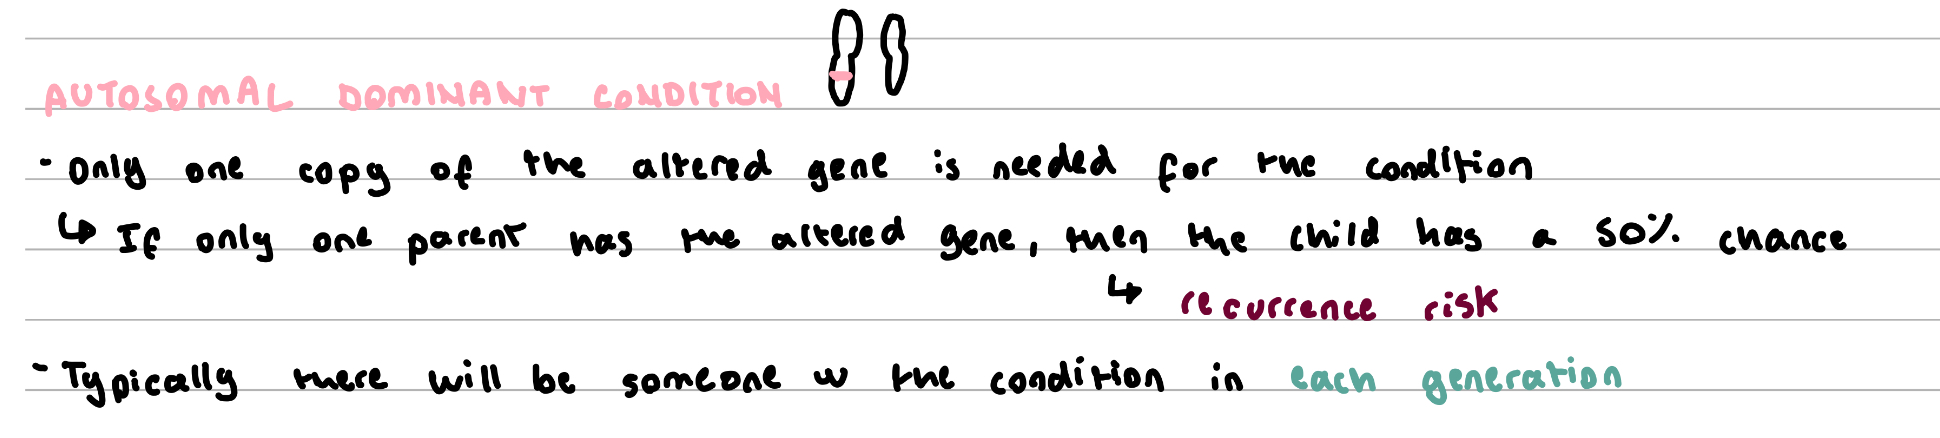 AUTOSOMAL DOMINANT CONDITION
- Only one copy of the altered gene is needed for the condition
↳ If only one parent has the altered gene, then the child has a 50% chance
↳ recurrence risk
- Typically there will be someone w the condition in each generation